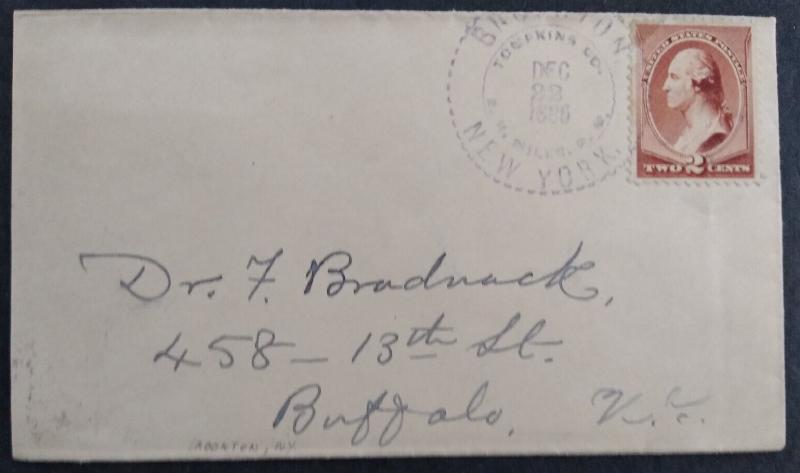 TOMPKINS CO.
DEC
22
NEW YORK.
UNITED STATES POSTAGE
TWO 2 CENTS
Dr. F. Bradnack,
458 - 13th St.
Buffalo, N.Y.